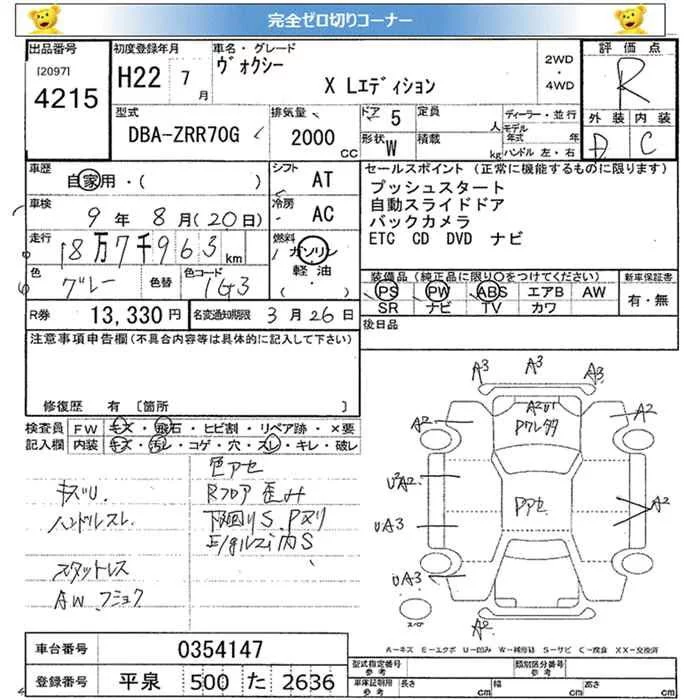 完全ゼロ切りコーナー
出品番号 初度登録年月 車名・グレード 評価点
[2097] H22 7月 ヴォクシー 2WD・4WD R
4215 X Lエディション
型式 排気量 ドア 5 定員 人 ディーラー・並行 外装 内装
DBA-ZRR70G 2000 CC 形状 W 積載 kg モデル年式 年 D C
ハンドル 左・右
車歴 自家用・( ) シフト AT セールスポイント (正常に機能するものに限ります)
プッシュスタート
車検 9年 8月(20日) 冷房 AC 自動スライドドア
バックカメラ
走行 8万7千963km 燃料 ガソリン ETC CD DVD ナビ
軽油
・( )
色 グレー 色替 色コード 1G3 装備品(純正品に限り○をつけてください) 新車保証書
PS PW ABS エアB AW 有・無
R券 13,330円 名変通知期限 3月26日 SR ナビ TV カワ
注意事項申告欄(不具合内容等は具体的に記入して下さい) 後日品
修復歴 有 [箇所 ]
検査員 FW キズ・飛石・ヒビ割・リペア跡・×要
記入欄 内装 キズ・汚レ・コゲ・穴・スレ・キレ・破レ
色アセ
キズU Rフロア歪み
ハンドルスレ 下回りS Pヌリ
E/gルーム内S
スタットレス
AW フショク
A3 A3 A3
A2 A2U1 A2
Pワレタタ
U2A2 Pアセ A2
UA3
UA3
スペアー A2
A-キズ E-エクボ U-凹み W-補修跡 S-サビ C-腐食 XX-交換済
車台番号 0354147
型式指定番号 参考 類別区分番号 参考
登録番号 平泉 500 た 2636
車庫証明用 参考 長さ cm 幅 cm 高さ cm